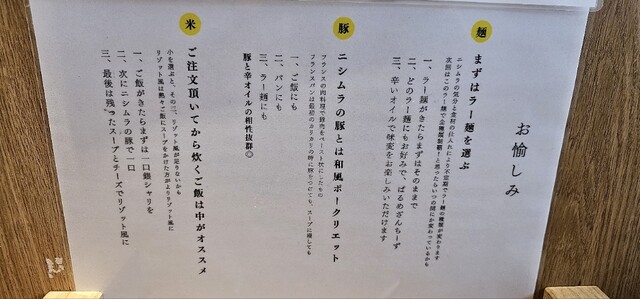 お愉しみ
麺
まずはラー麺を選ぶ
ニシムラの気分と食材の仕入れにより不定期でラー麺の種類が変わります
次回はこのラー麺で全種類制覇！と思ったらいつの間にか変わっているかも
一、ラー麺がきたらまずはそのままで
二、どのラー麺にもお好みで、ぱるめざんちーず
三、辛いオイルで味変をお楽しみいただけます
豚
ニシムラの豚とは和風ポークリエット
フランスの肉料理で豚肉をペースト状にしたもの
フランスパンは最初のカリカリの時に豚をつけても、スープに浸しても
一、ご飯にも
二、パンにも
三、ラー麺にも
豚と辛オイルの相性抜群◎
米
ご注文頂いてから炊くご飯は中がオススメ
小を選ぶと、その二、リゾット風が足りないかも
リゾット風は熱々ご飯にスープをかけた方がよりリゾット風に
一、ご飯がきたらまずは一口銀シャリを
二、次にニシムラの豚で一口
三、最後は残ったスープとチーズでリゾット風に